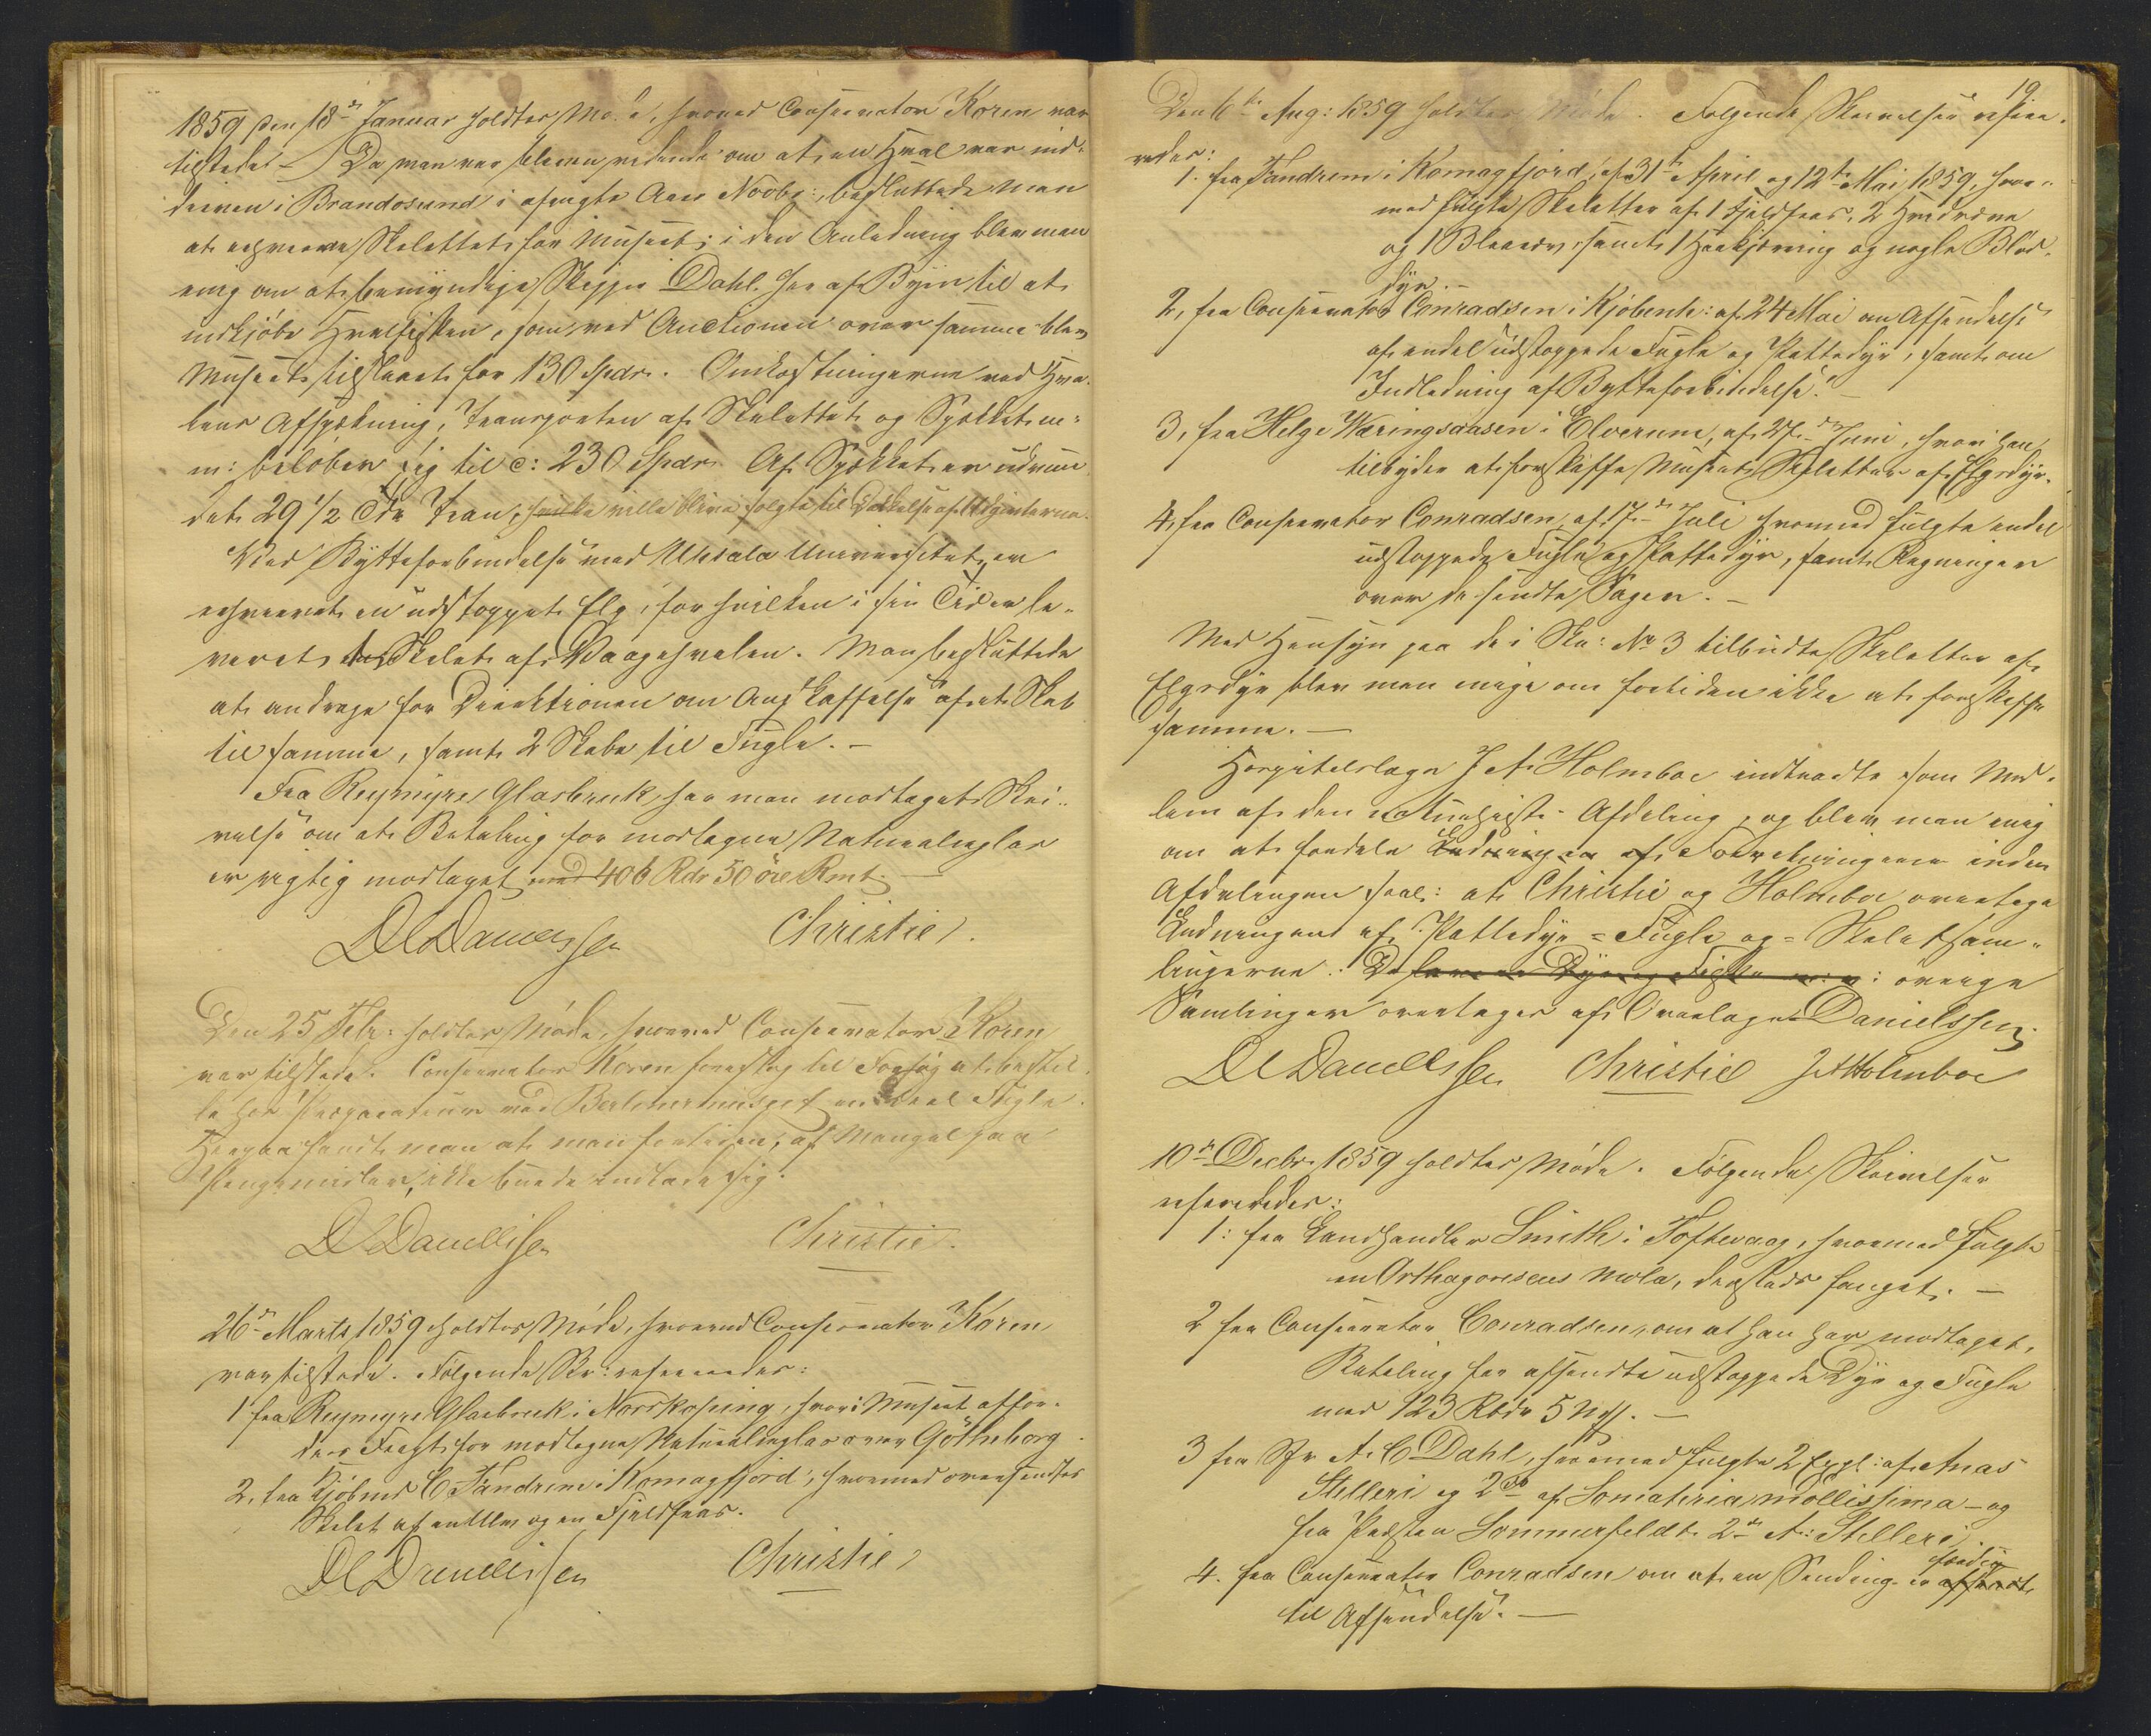 1859 den 18de Januar holdtes Møde, hvorved Conservator Koren var
tilstede. – Da man var bleven vidende om at en Hval var ind-
dreven i Brandosund i afvigte Aars Novbr:, besluttede man
at erhverve Skelettet for Museet; i den Anledning blev man
enig om at bemyndige Skipper Dahl her af Byen til at
indkjöbe Hvalfisken, som ved Auctionen over samme blev
Museets tilslaaet for 130 Spdr. Omkostningerne ved Hva-
lens Afspækning, Transporten af Skelettet og Spækket m:
m: beløber sig til c: 230 Spdr. Af Spækket er udvun-
det 29 1/2 Tdr Tran, hvilke ville blive solgte til Dækkelse af Udgifterne.
Ved Bytteforbindelse med Upsala Universitet er
erhvervet en udstoppet Elg, for hvilken i sin Tid er le-
veret Skelet af Vaagehvalen. Man besluttede
at andrage for Direktionen om Anskaffelse af et Skab
til samme, samt 2 Skabe til Fugle. –
Fra Reymyre Glasbruk har man modtaget Skri-
velse om at Betaling for modtagne Naturalieglas
er rigtig modtaget med 406 Rdr 50 öre Rmt. –
D C Danielssen Christie.
Den 25 Febr: holdtes Møde, hvorved Conservator Koren
var tilstede. Conservator Koren foreslog til Forsøg at bestil-
le hos Præparateur ved Berlinermuseet en Deel Fugle.
Herpaa fandt man at man fortiden, af Mangel paa
Pengemidler, ikke burde indlade sig.
D C Danielssen Christie.
26de Marts 1859 holdtes Møde, hvorved Conservator Koren
var tilstede. Følgende Skr: refereredes:
1 fra Reymyre Glasbruk i Norrkøping, hvori Museet affor-
des Fragt for modtagne Naturalieglas over Götheborg.
2, fra Kjøbmd C Fandrem i Komagfjord, hvormed oversendtes
Skelet af en Ulv og en Fjeldfras.
D C Danielssen Christie
19
Den 6te Aug: 1859 holdtes Møde. Følgende Skrivelser refere-
redes:
1. fra Fandrem i Komagfjord, af 31te April og 12te Mai 1859, hvor-
med fulgte Skeletter af 1 Fjeldfras, 2 Hvidræve
og 1 Blaaræv, samt 1 Haakjærring og nogle Blød-
dyr. –
2, fra Conservator Conradsen i Kjöbenh: af 24 Mai om Afsendelse
af endel udstoppede Fugle og Pattedyr, samt om
Indledning af Bytteforbindelse. –
3, fra Helge Væringsaasen i Elverum, af 27de Juni, hvori han
tilbyder at forskaffe Museet Skeletter af Elgsdyr.
4, fra Conservator Conradsen af 17de Juli hvormed fulgte endel
udstoppede Fugle og Pattedyr, samt Regninger
over de sendte Sager. –
Med Hensyn paa de i Skr: No 3 tilbudte Skeletter af
Elgsdyr blev man enige om fortiden ikke at forskaffe
samme. –
Hospitalslæge J A Holmboe indtraadte som Med-
lem af den naturhist. Afdeling, og blev man enig
om at fordele Ledningen af Forretningerne inden
Afdelingen saal: at Christie og Holmboe overtage
Ledningen af Pattedyr- Fugle og- Skeletsam-
lingerne. De lavere Dyr og Fiske m: øvrige
Samlinger overtages af Overlæge Danielssen.
D C Danielssen Christie J A Holmboe
10de Decbr 1859 holdtes Møde. Følgende Skrivelser
refereredes:
1: fra Landhandler Smith i Toftevaag, hvormed fulgte
en Orthagoriscus mola, dersteds fanget. –
2 fra Conservator Conradsen, om at han har modtaget
Betaling for afsendte udstoppede Dyr og Fugle
med 123 Rbdr 5 Mk. –
3 fra Hr A. C Dahl, hvormed fulgte 2 Expl: af Anas
Stelleri og 2 do af Somateria mollissima – og
fra Pastor Sommerfeldt 2de A: Stelleri.
4. fra Conservator Conradsen om at en Sending er færdig
til Afsendelse. –